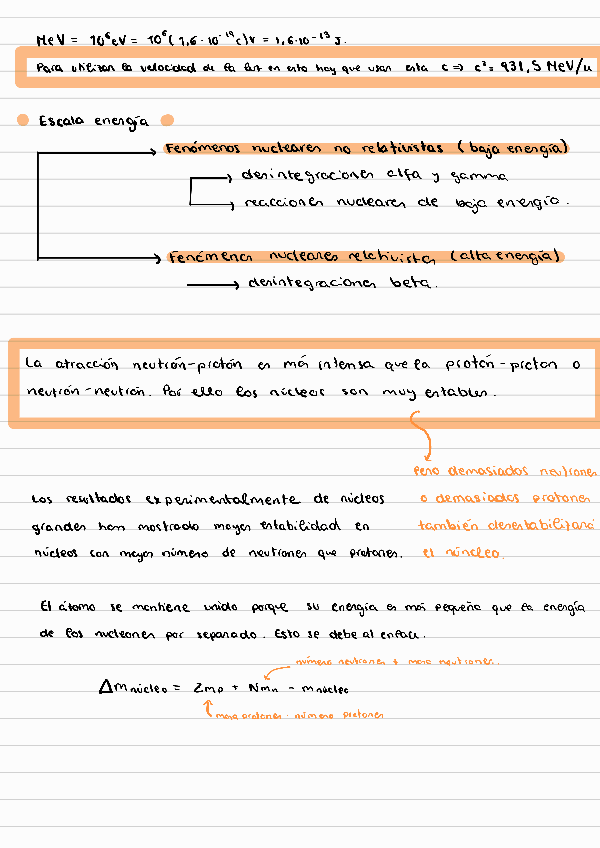 MeV = 10⁶ eV = 10⁶ (1,6·10⁻¹⁹ C)V = 1,6·10⁻¹³ J.
Para utilizar la velocidad de la luz en esto hay que usar esta c ⇒ c² = 931,5 MeV/u
Escala energía
Fenómenos nucleares no relativistas (baja energía)
desintegraciones alfa y gamma
reacciones nucleares de baja energía.
Fenómenos nucleares relativista (alta energía)
desintegraciones beta.
La atracción neutrón-protón es más intensa que la protón-protón o
neutrón-neutrón. Por ello los núcleos son muy estables.
Pero demasiados neutrones
o demasiados protones
también desestabilizará
el núncleo.
Los resultados experimentalmente de núcleos
grandes han mostrado mayor estabilidad en
núcleos con mayor número de neutrones que protones.
El átomo se mantiene unido porque su energía es más pequeña que la energía
de los nucleones por separado. Esto se debe al enlace.
número neutrones + masa neutrones.
Δm núcleo = Zmp + Nmn - m núcleo
masa protones · número protones